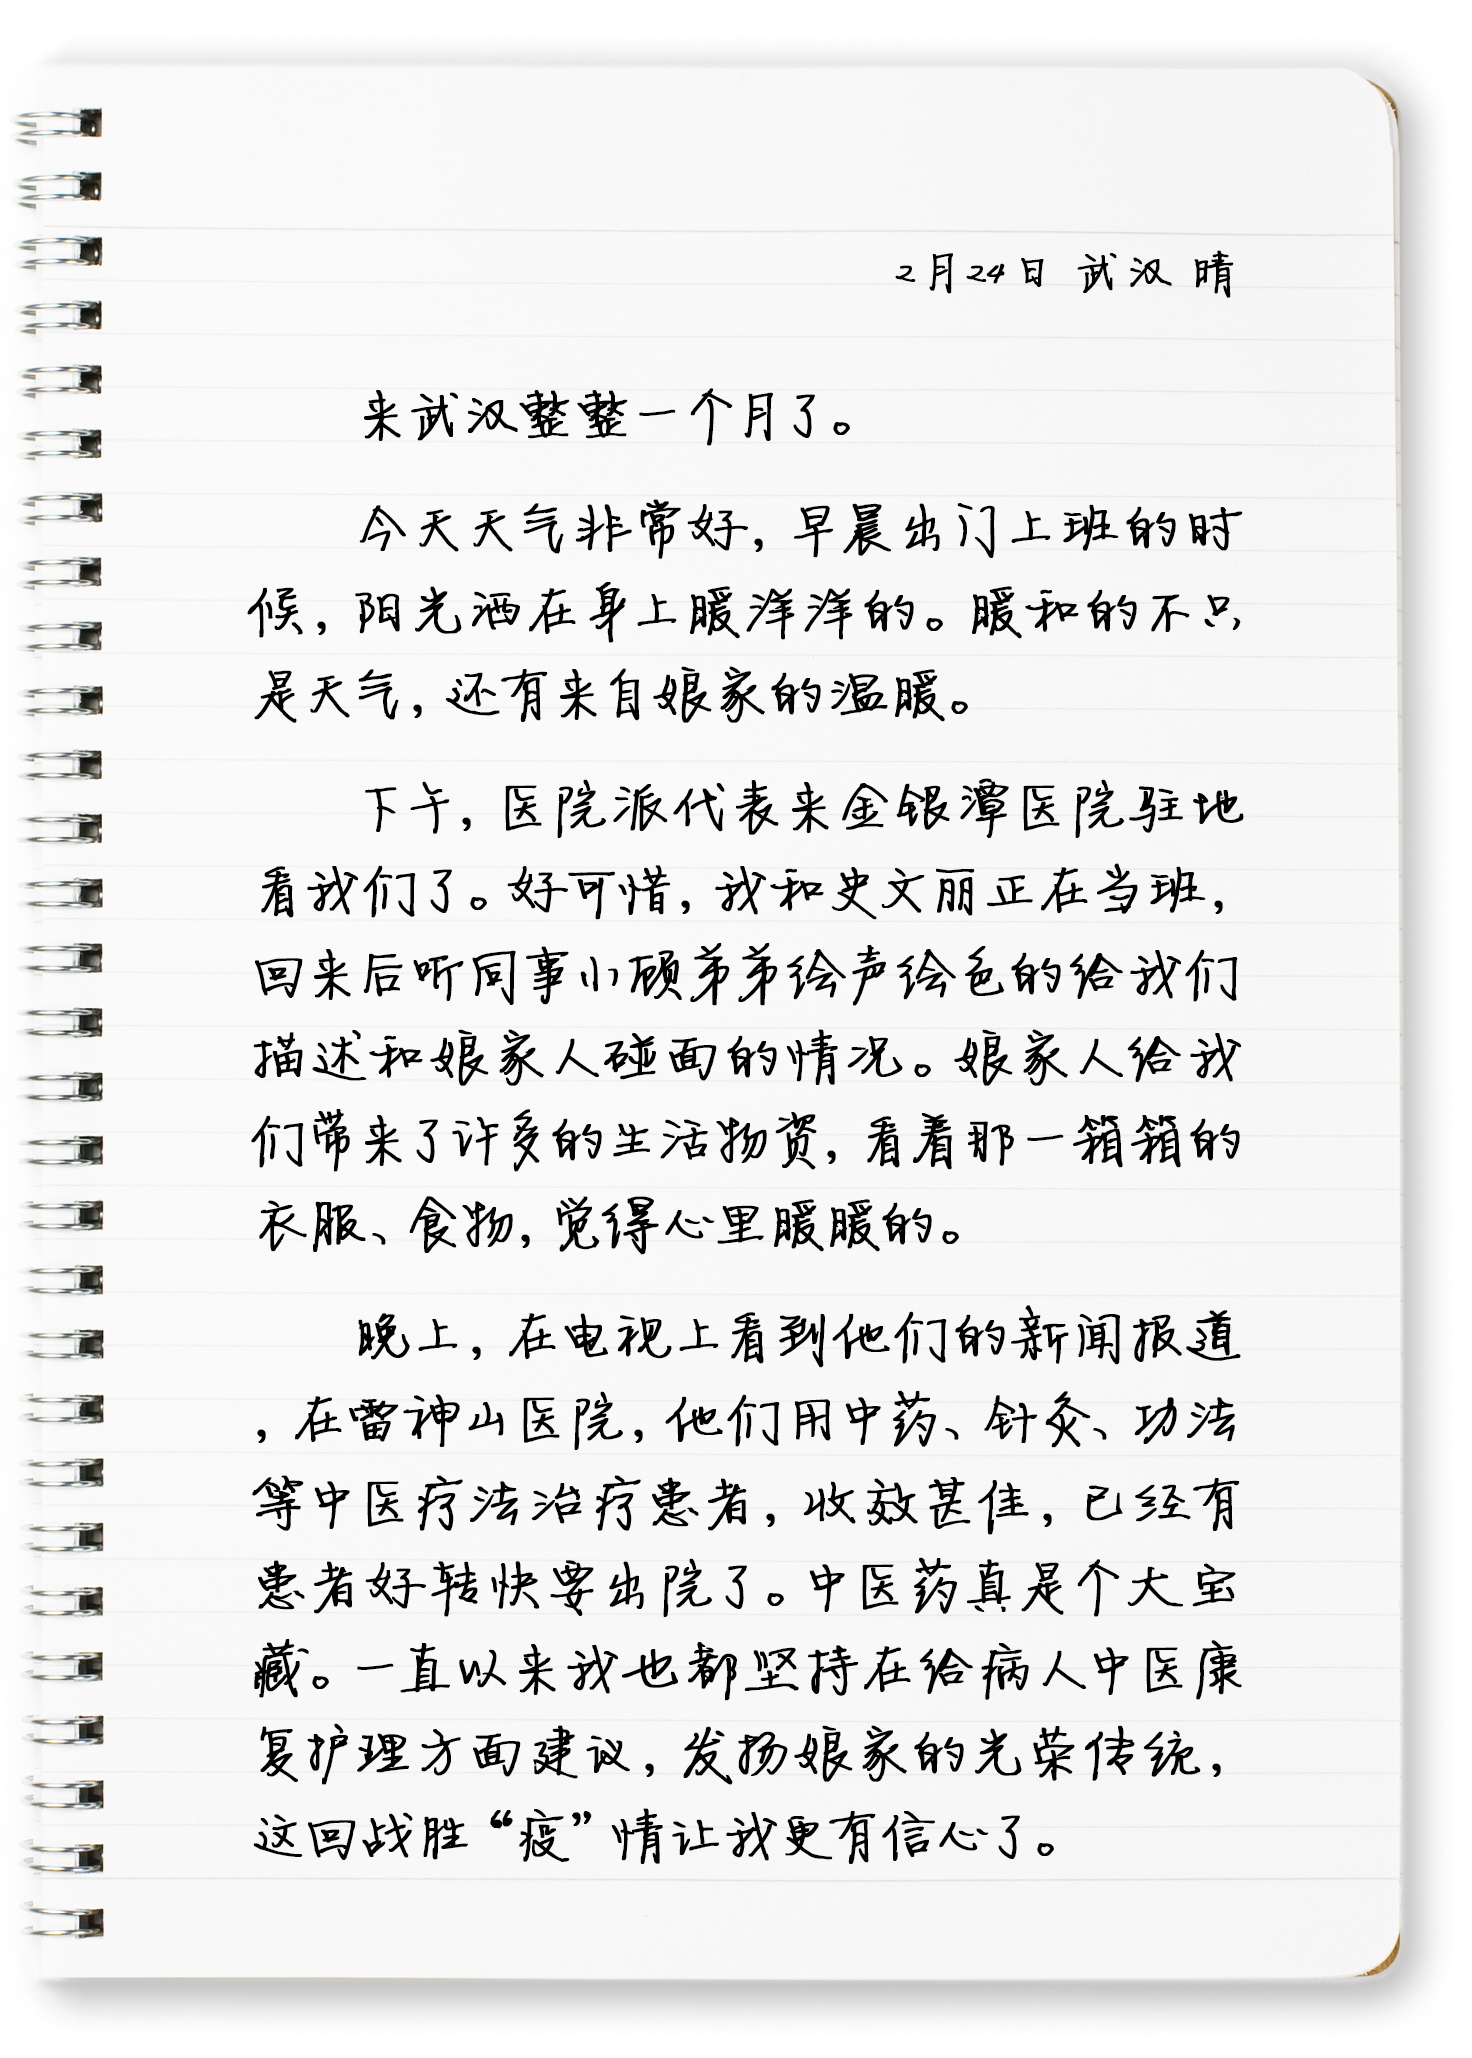 2月24日 武汉 晴
来武汉整整一个月了。
今天天气非常好，早晨出门上班的时
候，阳光洒在身上暖洋洋的。暖和的不只
是天气，还有来自娘家的温暖。
下午，医院派代表来金银潭医院驻地
看我们了。好可惜，我和史文丽正在当班，
回来后听同事小顾弟弟绘声绘色的给我们
描述和娘家人碰面的情况。娘家人给我
们带来了许多的生活物资，看着那一箱箱的
衣服、食物，觉得心里暖暖的。
晚上，在电视上看到他们的新闻报道
，在雷神山医院，他们用中药、针灸、功法
等中医疗法治疗患者，收效甚佳，已经有
患者好转快要出院了。中医药真是个大宝
藏。一直以来我也都坚持在给病人中医康
复护理方面建议，发扬娘家的光荣传统，
这回战胜“疫”情让我更有信心了。